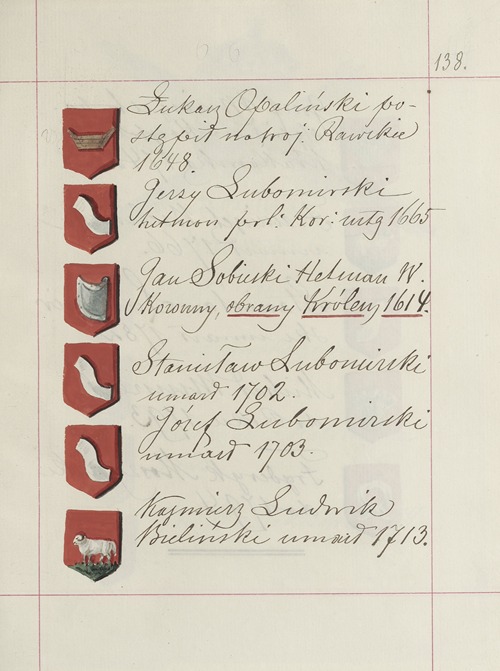 138.
Łukasz Opaliński po-
stąpił na woj. Rawskie
1648.
Jerzy Lubomirski
hetman pol: Kor: ustą 1665
Jan Sobieski Hetman W.
Koronny, obrany Królem 1614.
Stanisław Lubomirski
umarł 1702.
Józef Lubomirski
umarł 1703.
Kazimierz Ludwik
Bieliński umarł 1713.